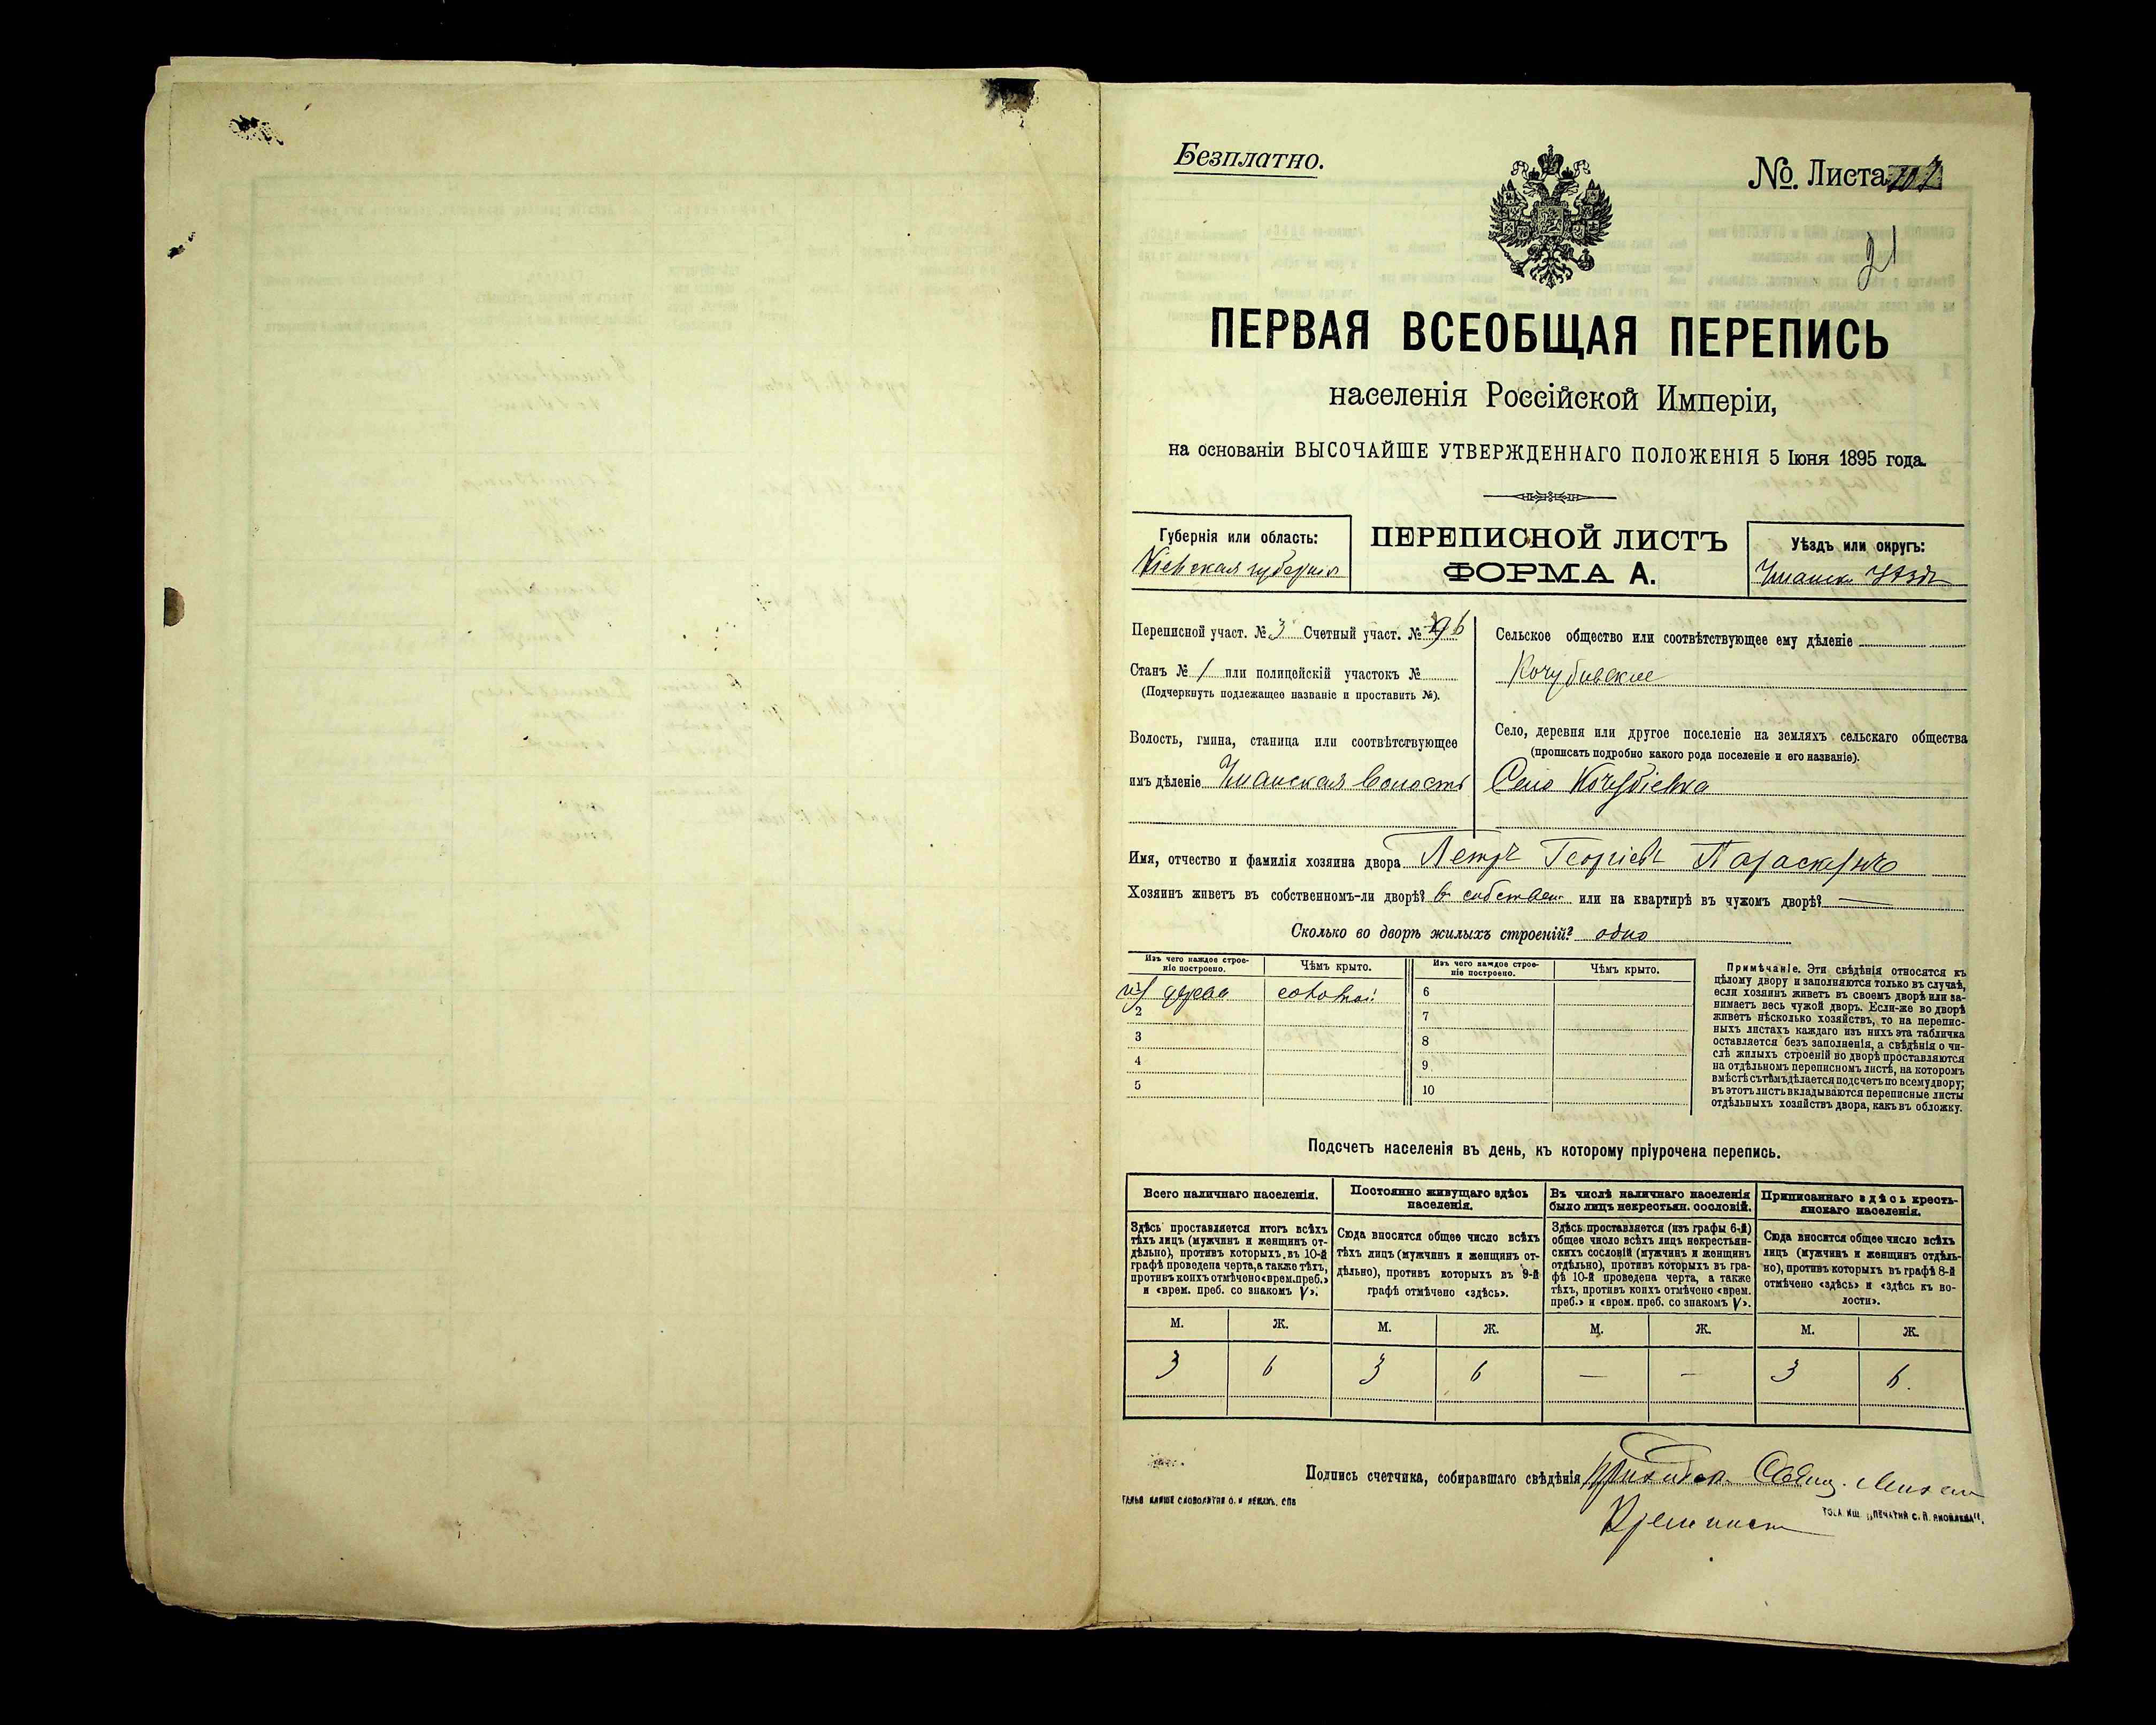 Безплатно.
№. Листа 107
21
ПЕРВАЯ ВСЕОБЩАЯ ПЕРЕПИСЬ
населенія Россійской Имперіи,
на основаніи ВЫСОЧАЙШЕ УТВЕРЖДЕННАГО ПОЛОЖЕНІЯ 5 Іюня 1895 года.
Губернія или область:
Кіевская губернія
ПЕРЕПИСНОЙ ЛИСТЪ
ФОРМА А.
Уѣздъ или округъ:
Уманск Уѣздъ
Переписной участ. № 3 Счетный участ. №
Станъ № 1 или полицейскій участокъ №
(Подчеркнуть подлежащее названіе и проставить №).
Волость, гмина, станица или соотвѣтствующее
имъ дѣленіе Уманская волость
Сельское общество или соотвѣтствующее ему дѣленіе
Кочубивское
Село, деревня или другое поселеніе на земляхъ сельскаго общества
(прописать подробно какого рода поселеніе и его названіе).
Село Кочубіевка
Имя, отчество и фамилія хозяина двора Петръ Георгіевъ
Хозяинъ живетъ въ собственномъ-ли дворѣ? в собствен. или на квартирѣ въ чужомъ дворѣ? —
Сколько во дворѣ жилыхъ строеній? одно
Изъ чего каждое строе-
ніе построено.
Чѣмъ крыто.
Изъ чего каждое строе-
ніе построено.
Чѣмъ крыто.
из дерева соломой 6
2 7
3 8
4 9
5 10
Примѣчаніе. Эти свѣдѣнія относятся къ
цѣлому двору и заполняются только въ случаѣ,
если хозяинъ живетъ въ своемъ дворѣ или за-
нимаетъ весь чужой дворъ. Если-же во дворѣ
живетъ нѣсколько хозяйствъ, то на перепис-
ныхъ листахъ каждаго изъ нихъ эта табличка
оставляется безъ заполненія, а свѣдѣнія о чи-
слѣ жилыхъ строеній во дворѣ проставляются
на отдѣльномъ переписномъ листѣ, на которомъ
вмѣстѣ съ тѣмъ дѣлается подсчетъ по всему двору;
въ этотъ листъ вкладываются переписные листы
отдѣльныхъ хозяйствъ двора, какъ въ обложку.
Подсчетъ населенія въ день, къ которому пріурочена перепись.
Всего наличнаго населенія.
Здѣсь проставляется итогъ всѣхъ
тѣхъ лицъ (мужчинъ и женщинъ от-
дѣльно), противъ которыхъ въ 10-й
графѣ проведена черта, а также тѣхъ,
противъ коихъ отмѣчено «врем. преб.»
и «врем. преб. со знакомъ V».
Постоянно живущаго здѣсь
населенія.
Сюда вносится общее число всѣхъ
тѣхъ лицъ (мужчинъ и женщинъ от-
дѣльно), противъ которыхъ въ 9-й
графѣ отмѣчено «здѣсь».
Въ числѣ наличнаго населенія
было лицъ некрестьян. сословій.
Здѣсь проставляется (изъ графы 6-й)
общее число всѣхъ лицъ некрестьян-
скихъ сословій (мужчинъ и женщинъ
отдѣльно), противъ которыхъ въ гра-
фѣ 10-й проведена черта, а также
тѣхъ, противъ коихъ отмѣчено «врем.
преб.» и «врем. преб. со знакомъ V».
Приписаннаго здѣсь кресть-
янскаго населенія.
Сюда вносится общее число всѣхъ
лицъ (мужчинъ и женщинъ отдѣль-
но), противъ которыхъ въ графѣ 8-й
отмѣчено «здѣсь» и «здѣсь къ во-
лости».
М. Ж. М. Ж. М. Ж. М. Ж.
3 6 3 6 — — 3 6.
Подпись счетчика, собиравшаго свѣдѣнія